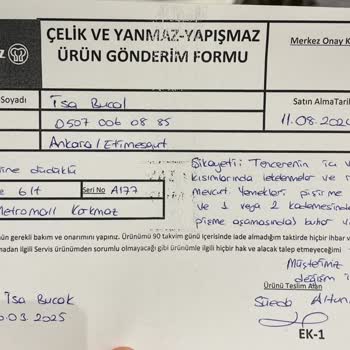 ÇELİK VE YANMAZ-YAPIŞMAZ
ÜRÜN GÖNDERİM FORMU
Merkez Onay K
Soyadı
İsa Bucak
Satın AlmaTarih
11.08.202
0507 006 08 85
Ankara/Etimesgut
ine düdüklü
e 6 lt
Seri No A177
Metromall Korkmaz
Şikayeti: Tencerenin iç v
kısımlarında lekelenmeler ve
mevcut. Yemekleri pişirme
ve 1 veya 2 kademesinde
pişme aşamasında buhar
ün gerekli bakım ve onarımını yapınız. Ürünümü 90 takvim günü içerisinde iade almadığım taktirde hiçbir ihbar v
madan ilgili Servis ürünümden sorumlu olmayacağı gibi ürünümle ilgili hiçbir hak ve alacak talep etmeyeceğimi
Müşterimiz
değişim
Ürünü Teslim Alan
İsa Bucak
.03 2025
EK-1